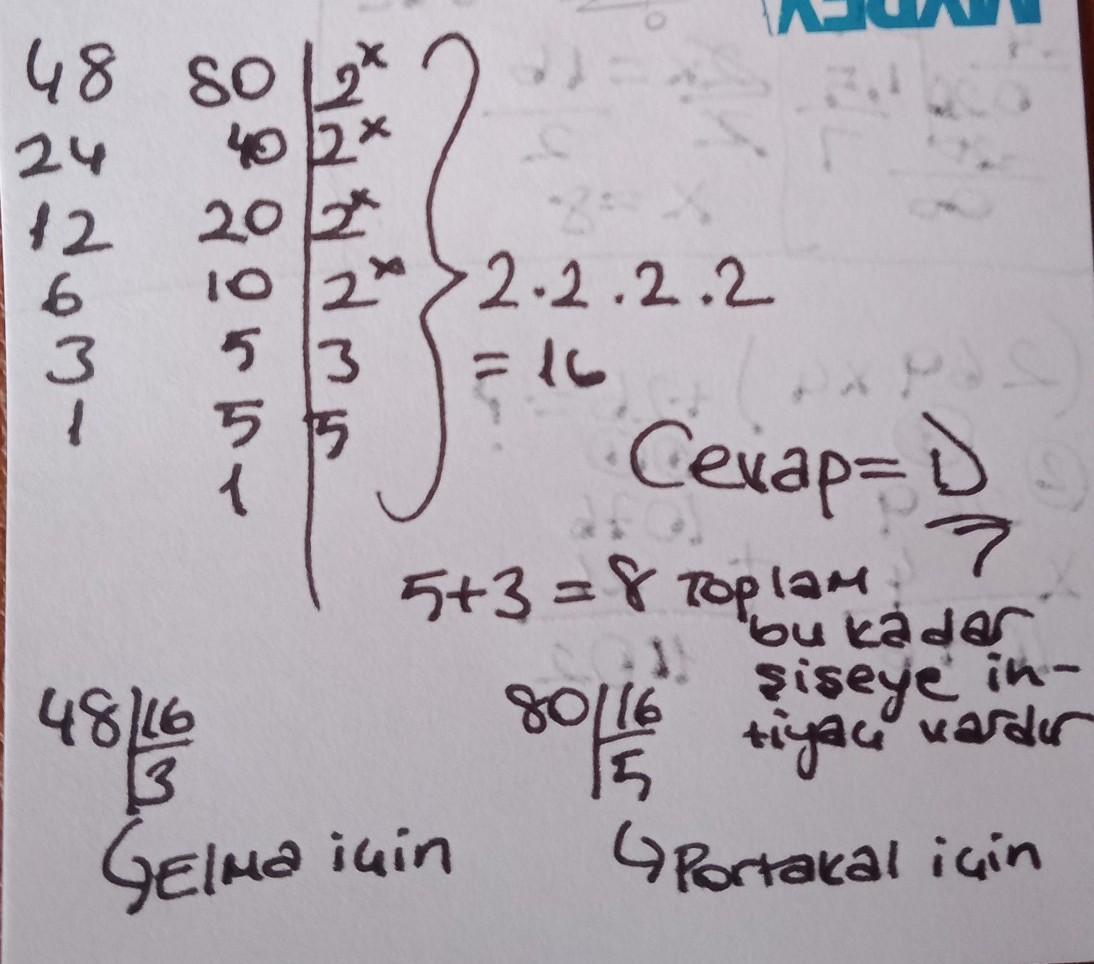 48 80 | 2ˣ
24 40 | 2ˣ
12 20 | 2ˣ
6 10 | 2ˣ
3 5 | 3
1 5 | 5
1
2.2.2.2
= 16
Cevap = D
5+3 = 8 Toplam
bu kadar
şişeye in-
tiyacı vardır
48 | 16
3
↳ Elma için
80 | 16
5
↳ Portakal için